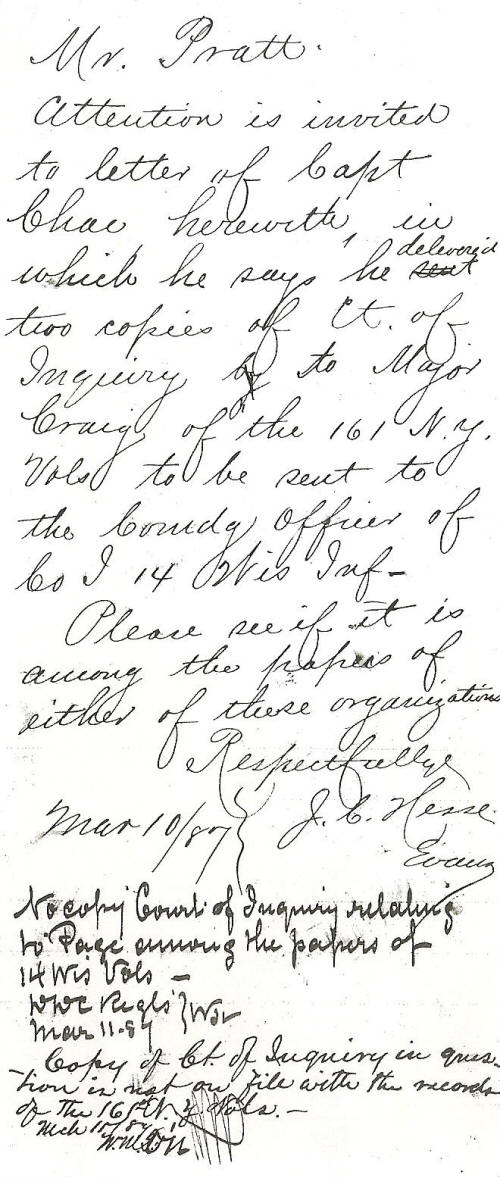 Mr. Pratt.
Attention is invited
to letter of Capt
Chae, herewith, in
which he says he sent delivered
two copies of Ct. of
Inquiry by to Major
Craig of the 161 N.Y.
Vols to be sent to
the Comdg Officer of
Co I 14 Wis Inf-
Please see if it is
among the papers of
either of these organizations
Respectfully
Mar 10/87 J. C. Hesse
No copy Court of Inquiry relating
to Page among the papers of
14 Wis Vols -
Mar 11-87
Copy of Ct. of Inquiry in ques-
tion is not on file with the records
of the 161st N.Y Vols. -